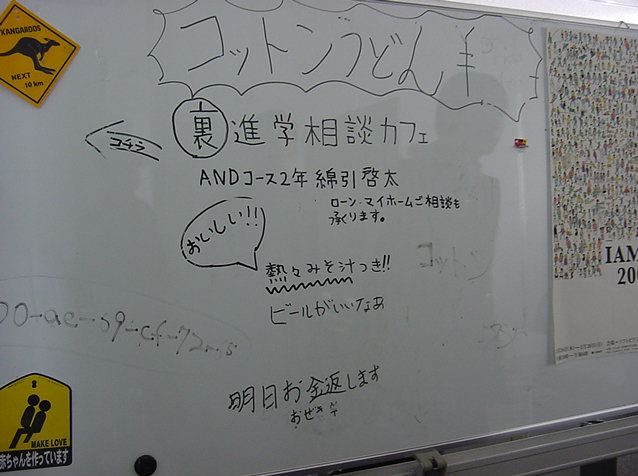 KANGAROOS
NEXT
10 km
コットンうどん
裏進学相談カフェ
コチラ
ANDコース2年 綿引啓太
ローン・マイホームご相談も
承ります。
おいしい!!
熱々みそ汁つき!!
ビールがいいなあ
IAM
200
コットン
明日お金返します
おぜき
MAKE LOVE
赤ちゃんを作っています